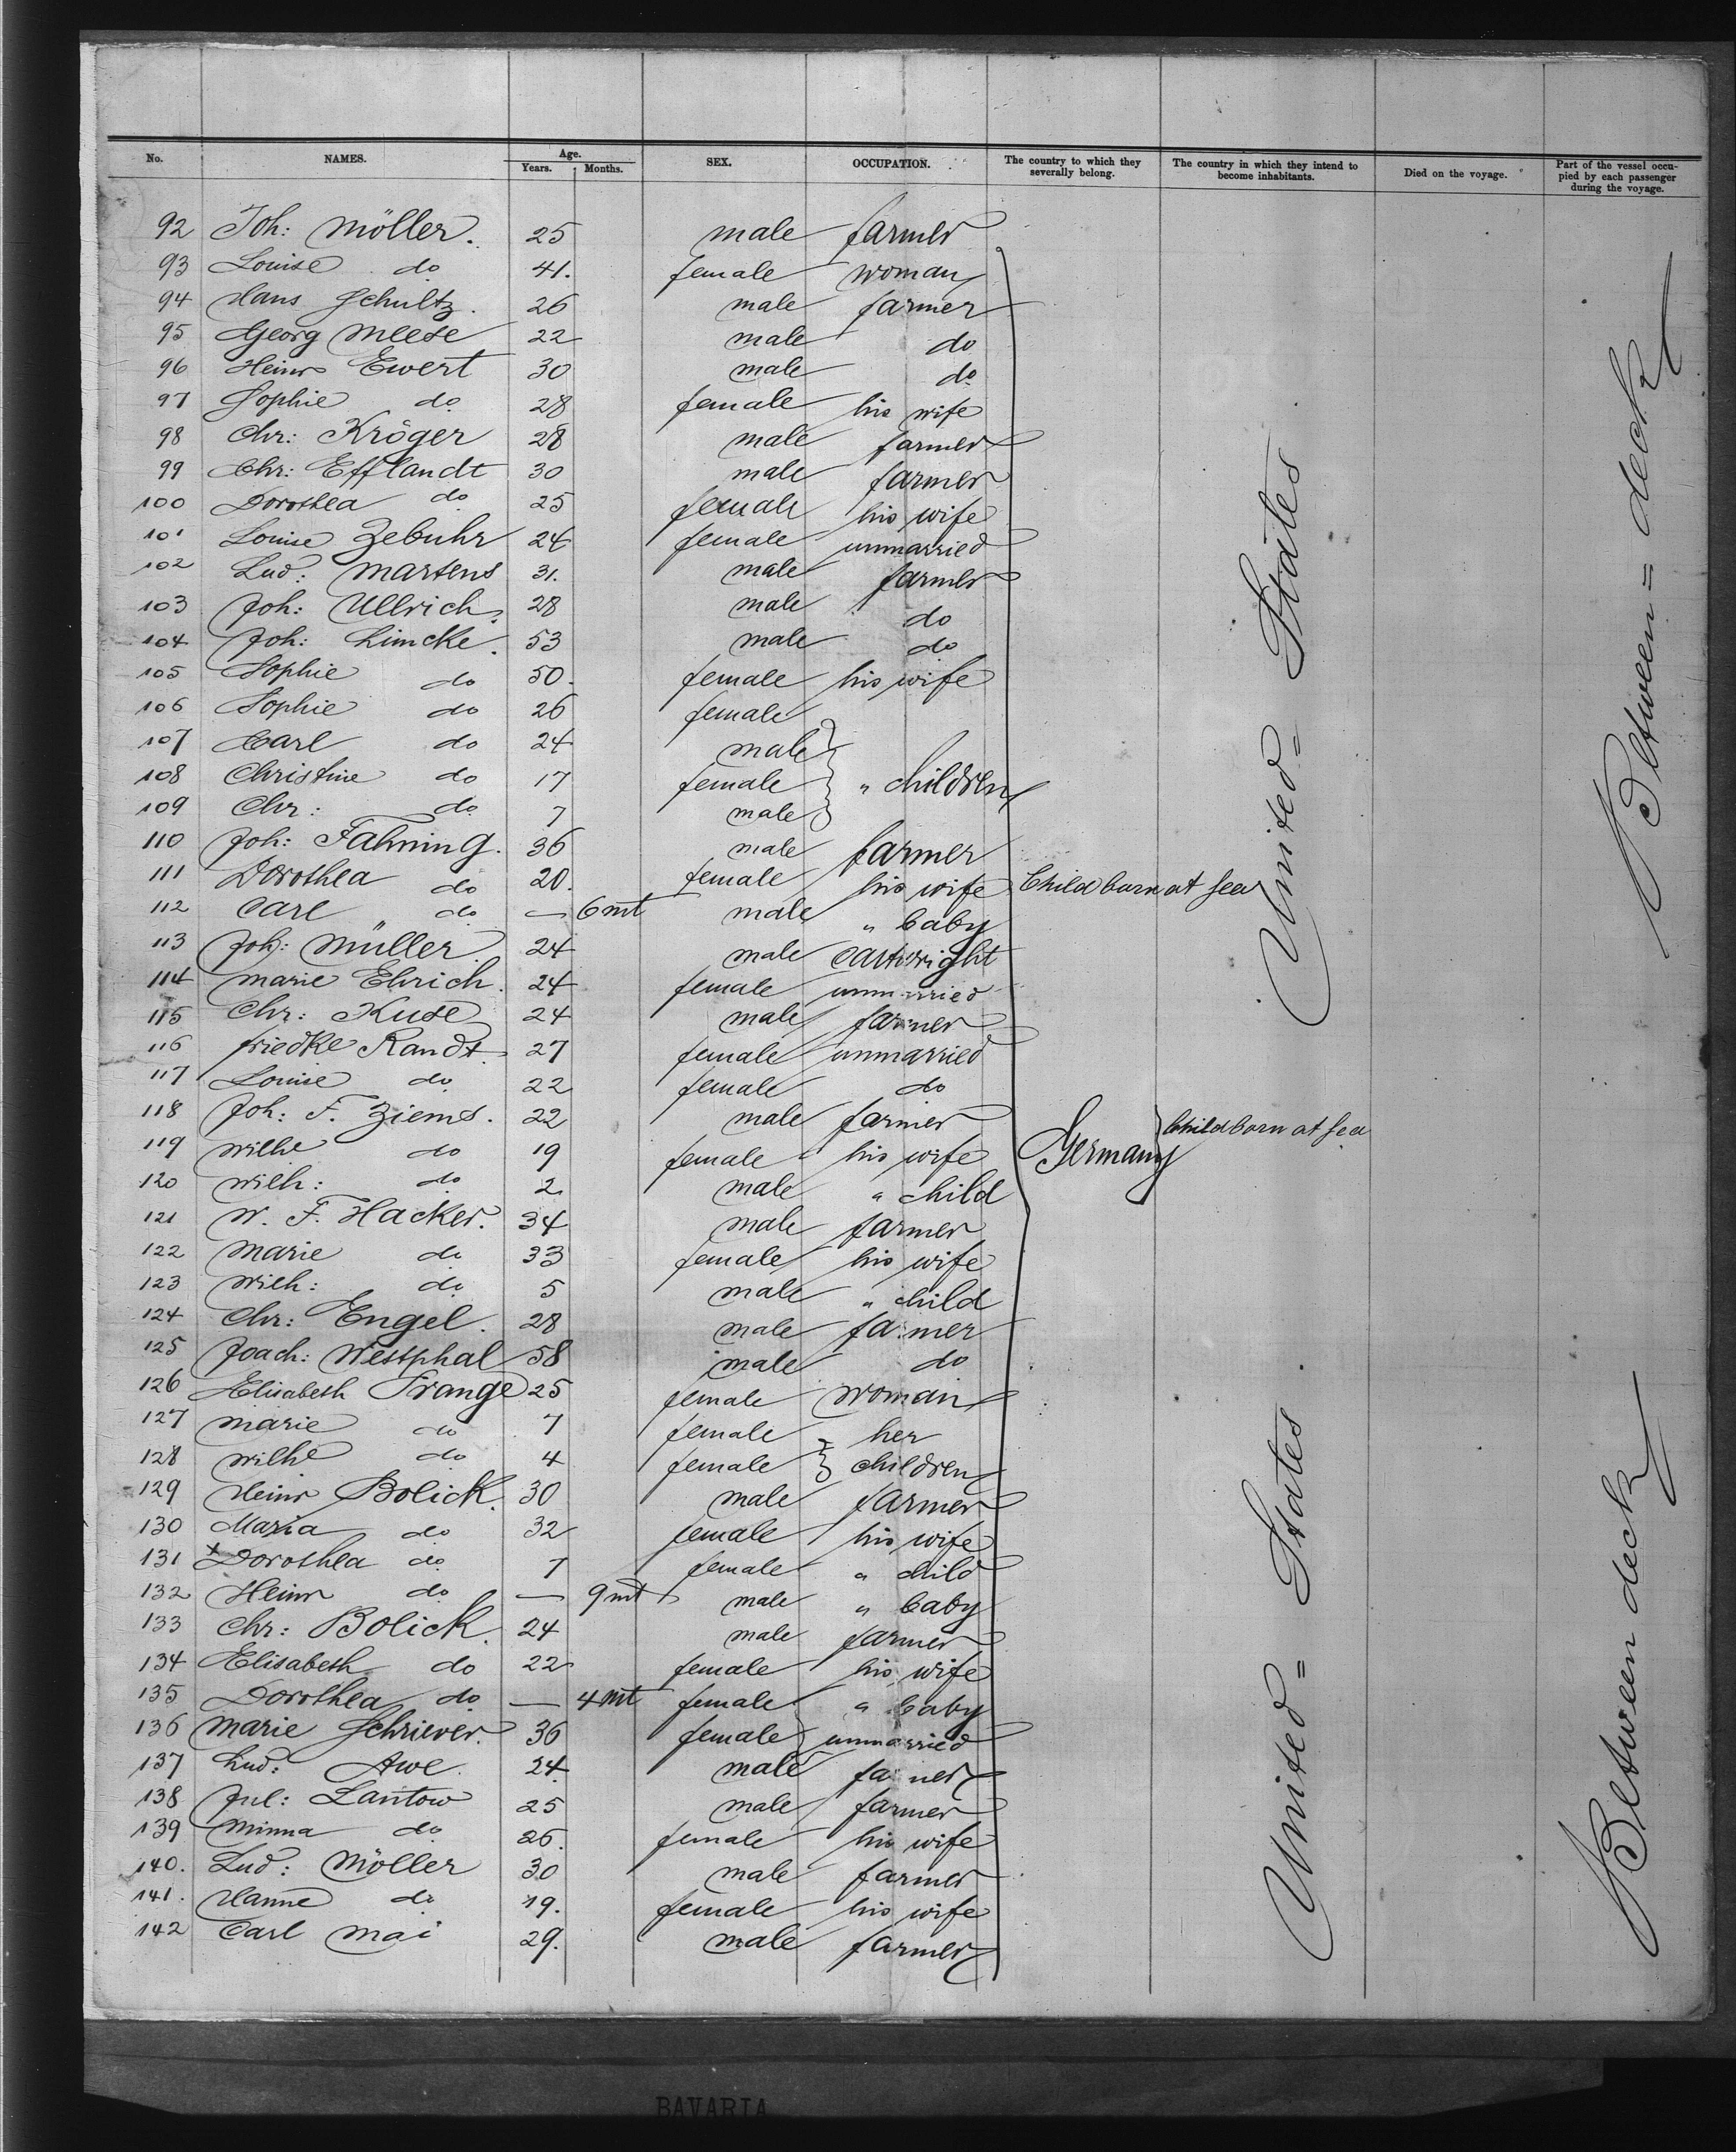 No. NAMES. Age. Years. Months. SEX. OCCUPATION. The country to which they severally belong. The country in which they intend to become inhabitants. Died on the voyage. Part of the vessel occupied by each passenger during the voyage.
92 Joh: Möller. 25 male farmer
93 Louise do 41. female woman
94 Hans Schultz. 26 male farmer
95 Georg Meese 22 male do
96 Heinr Ewert 30 male do
97 Sophie do 28 female his wife
98 Chr: Kröger 28 male farmer
99 Chr: Efflandt 30 male farmer
100 Dorothea do 25 female his wife
101 Louise Zebuhr 24 female unmarried
102 Lud: Martens 31. male farmer
103 Joh: Ullrich. 28 male do
104 Joh: Limcke. 53 male do
105 Sophie do 50. female his wife
106 Sophie do 26 female
107 Carl do 24 male
108 Christine do 17 female " children
109 Chr: do 7 male
110 Joh: Fahning. 36 male farmer
111 Dorothea do 20. female his wife Child born at sea
112 Carl " do — 6 mt male " baby
113 Joh: Müller. 24 male cartwright
114 Marie Ehrich. 24 female unmarried
115 Chr: Kuse 24 male farmer
116 Friedke Randt 27 female unmarried
117 Louise do 22 female do
118 Joh: F. Ziems. 22 male farmer Child born at sea
119 Wilhe do 19 female his wife Germany
120 Wilh: do 2 male " child
121 W. F. Hacker. 34 male farmer
122 Marie do 33 female his wife
123 Wilh: do 5 male " child
124 Chr: Engel. 28 male farmer
125 Joach: Westphal 58 male do
126 Elisabeth Prange 25 female woman
127 Marie do 7 female her
128 Wilhe do 4 female children
129 Heinr Bolick. 30 male farmer
130 Maria do 32 female his wife
131 x Dorothea do 7 female " child
132 Heinr do — 9 mt male " baby
133 Chr: Bolick. 24 male farmer
134 Elisabeth do 22 female his wife
135 Dorothea do — 4 mt female " baby
136 Marie Schriever. 36 female unmarried
137 Lud: Awe. 24. male farmer
138 Jul: Lantow 25 male farmer
139 Minna do 26. female his wife
140. Lud: Möller 30 male farmer
141. Hanne do 19. female his wife
142 Carl Mai 29. male farmer
United= States
United= States
Between= deck
Between deck
BAVARIA